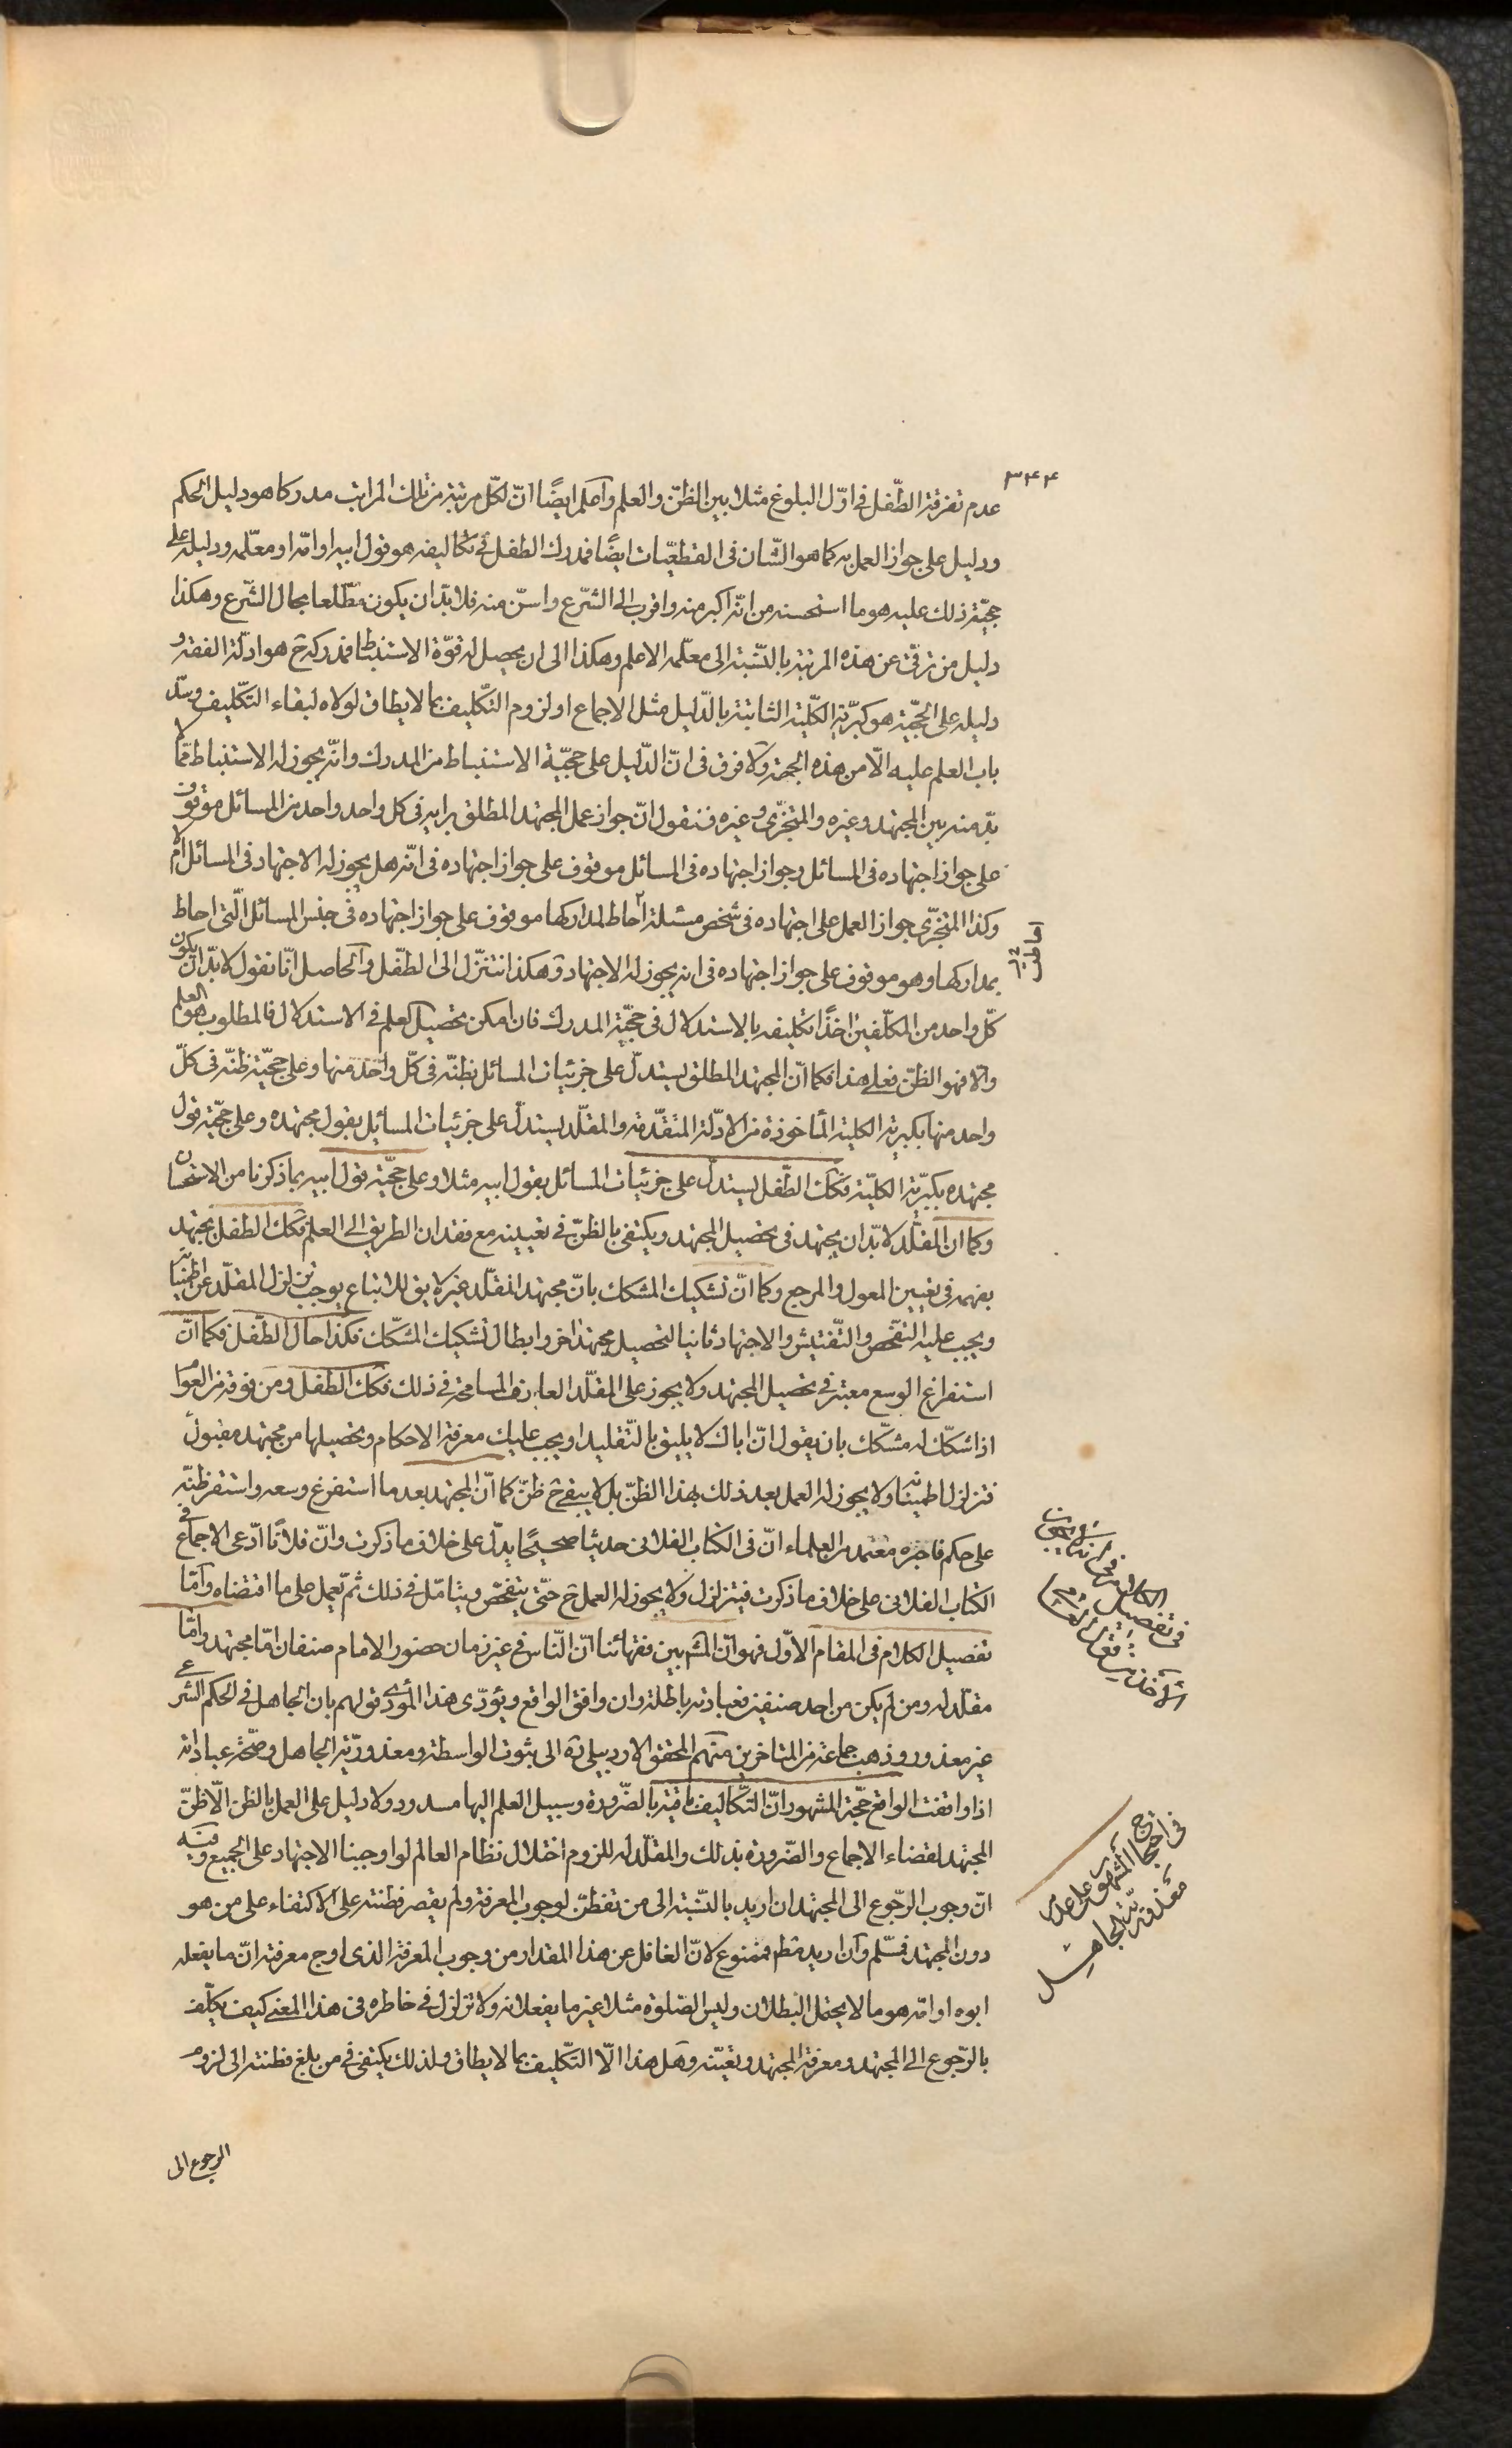 ٣٤٤
عدم تفرقة الطّفل فى اوّل البلوغ مثلا بين الظنّ والعلم وآعلم ايضًا انّ لكلّ مرتبة من تلك المراتب مدركا هو دليل الحكم
ودليل على جواز العمل به كما هو الشّان فى القطعيّات ايضًا فمدرك الطفل فى تكاليفه هو قول ابيه او امّه او معلّمه ودليله على
حجيّة ذلك عليه هو ما استحسنه من انّه اكبر منه واقرب الى الشّرع واسنّ منه فلا بدّ ان يكون مطّلعا بحال الشّرع وهكذا
دليل من ترقّى عن هذه المرتبة بالنّسبة الى معلّمه الاعلم وهكذا الى ان يحصل له قوّة الاستنباط فمدركه ح هو ادلّة الفقه و
دليله على الحجيّة هو كبريٰه الكلّية الثابتة بالدّليل مثل الاجماع او لزوم التكليف بما لا يطاق لولاه لبقاء التكليف وسدّ
باب العلم عليه الّا من هذه الجهة ولا فرق فى انّ الدّليل على حجيّة الاستنباط من المدرك وانّه يجوز له الاستنباط ممّا لا
بدّ منه بين المجتهد وغيره والمتجزّى وغيره فنقول انّ جواز عمل المجتهد المطلق برايه فى كل واحد واحد من المسائل موقوف
على جواز اجتهاده فى المسائل وجواز اجتهاده فى المسائل موقوف على جواز اجتهاده فى انّه هل يجوز له الاجتهاد فى المسائل ام لا
وكذا المتجزّى جواز العمل على اجتهاده فى شخص مسئلة احاط لمداركها موقوف على جواز اجتهاده فى جنس المسائل الّتى احاط
بمداركها وهو موقوف على جواز اجتهاده فى انه يجوز له الاجتهاد وهكذا نتنزّل الى الطّفل وآلحاصل انّا نقول لا بدّ ان يكون
كلّ واحد من المكلّفين اخذًا تكليفه بالاستدلال فى حجيّة المدرك فان امكن تحصيل العلم فى الاستدلال فالمطلوب هو العلم
والّا فهو الظنّ فعلى هذا فكما انّ المجتهد المطلق يستدلّ على جزئيات المسائل بظنّه فى كلّ واحد منها وعلى حجيّة ظنّه فى كلّ
واحد منها بكبريه الكلية المأخوذة من الادلّة المتقدّمة والمقلّد يستدلّ على جزئيات المسائل بقول مجتهده وعلى حجيّة قول
مجتهده بكبريه الكليّة فكك الطّفل يستدلّ على جزئيات المسائل بقول ابيه مثلا وعلى حجيّة قول ابيه بما ذكرنا من الاستحسان
وكما ان المقلّد لا بدّ ان يجتهد فى تحصيل المجتهد ويكتفى بالظنّ فى تعيينه مع فقدان الطريق الى العلم فكك الطفل يجتهد
بفهمه فى تعيين المعول والمرجع وكما انّ تشكيك المشكك بانّ مجتهد المقلّد غير لايق للاتباع يوجب تزلزل المقلّد عن اطمينانه
ويجب عليه التفحّص والتّفتيش والاجتهاد ثانيا لتحصيل مجتهد اخر وابطال تشكيك المشكّك فكذا حال الطّفل فكما انّ
استفراغ الوسع معتبر فى تحصيل المجتهد ولا يجوز على المقلّد العارف المسامحة فى ذلك فكك الطفل ومن فوقه من العوام
اذا شكّك له مشكّك بان يقول انّ اباك لا يليق بالتّقليد او يجب عليك معرفة الاحكام وتحصيلها من مجتهد مقبول
فتزلزل اطمينانه ولا يجوز له العمل بعد ذلك بهذا الظنّ بل لا يبقى ح ظنّ كما انّ المجتهد بعد ما استفرغ وسعه واستقر ظنّه
على حكم فاخبره معتمد من العلماء انّ فى الكتاب الفلانى حديثا صحيحًا يدلّ على خلاف ما ذكرت وانّ فلانًا ادّعى الاجماع فى
الكتاب الفلانى على خلاف ما ذكرت فيتزلزل ولا يجوز له العمل ح حتّى يتفحّص ويتامّل فى ذلك ثم يعمل على ما اقتضاه وآمّا
تفصيل الكلام فى المقام الاوّل فهو انّ المشهور بين فقهائنا انّ النّاس فى غير زمان حضور الامام صنفان امّا مجتهد وامّا
مقلّد له ومن لم يكن من احد صنفين فعبادته باطلة وان وافق الواقع ويؤدّى هذا المؤدّى قولهم بان الجاهل فى الحكم الشرعى
غير معذور وذهب جماعة من المتاخرين منهم المحقق الاردبيلى ره الى ثبوت الواسطة ومعذوريّة الجاهل وصحّة عباداته
اذا وافقت الواقع حجّة المشهور انّ التكاليف باقية بالضّرورة وسبيل العلم اليها مسدود ولا دليل على العمل بالظن الّا ظنّ
المجتهد لقضاء الاجماع والضّرورة بذلك والمقلّد له للزوم اختلال نظام العالم لو اوجبنا الاجتهاد على الجميع وفيه
انّ وجوب الرّجوع الى المجتهد ان اريد بالنّسبة الى من تفطّن لوجوب المعرفة ولم يقصر فطنته على الاكتفاء على من هو
دون المجتهد فمسلّم وآن اريد مطم فممنوع لانّ الغافل عن هذا المقدار من وجوب المعرفة الذى اوج معرفته انّ ما يفعله
ابوه او امّه هو ما لا يحتمل البطلان وليس الصّلوة مثلا غير ما يفعلانه ولا تزلزل فى خاطره فى هذا المعنى كيف يكلّف
بالرّجوع الى المجتهد ومعرفة المجتهد وتعيّنه وهل هذا الّا التّكليف بما لا يطاق ولذلك يكتفى فى من بلغ فطنته الى لزوم
الرجوع الى
احاطت
فى تفصيل الكلام
فى احتجاج المشهور على عدم
معذوريّة الجاهل